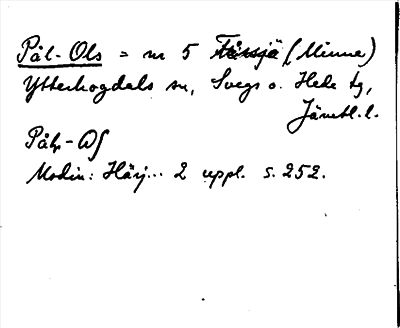 Pål-Ols = nr 5 (Minne)
Ytterhogdals sn, Svegs o. Hede tg,
Jämtl. l.
Påhr-Ols
Modin: Härj... 2 uppl. s. 252.